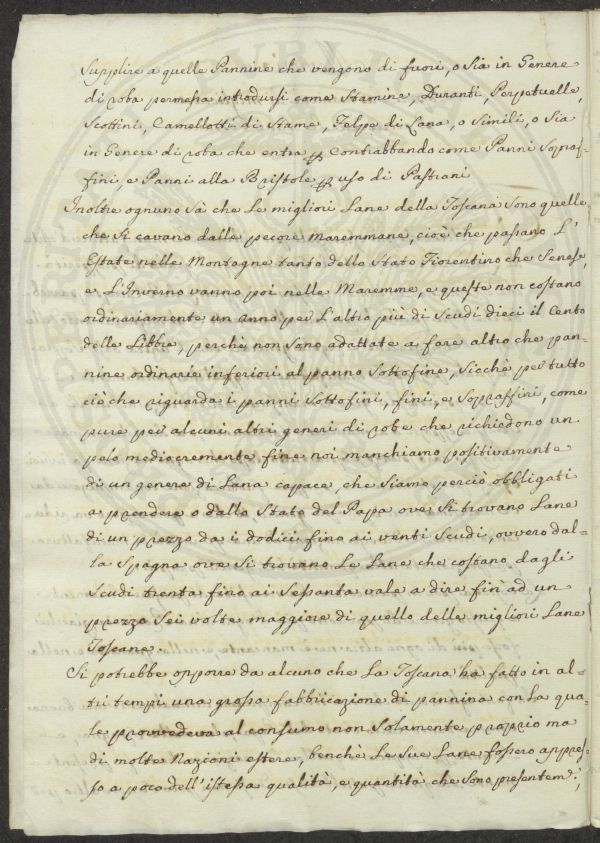 Supplire a quelle Pannine che vengono di fuori, o sia in Genere
di roba permessa introdursi come Stamine, Duranti, Perpetuelle,
Scottini, Camellotti di Stame, Felpe di Lana, o Simili, o sia
in Genere di roba che entra p Contrabbando come Panni Sopraf=
fini, e Panni alla Bristole p uso di Pastrani
Inoltre ognuno sà che Le migliori Lane della Toscana sono quelle
che si cavano dalle pecore Maremmane, cioè che passano L'
Estate nelle Montagne tanto dello Stato Fiorentino che Senese,
e L'Inverno vanno poi nelle Maremme, e queste non costano
ordinariamente un anno per L'altro più di Scudi dieci il Cento
delle Libbre, perchè non sono adattate a fare altro che pan=
nine ordinarie inferiori al panno Sottofine, Sicchè per tutto
ciò che riguarda i panni Sottofini, fini, e Sopraffini, come
pure per alcuni altri generi di robe che richiedono un
pelo mediocremente fine noi manchiamo positivamente
di un genere di Lana capace, che siamo perciò obbligati
a prendere o dallo Stato del Papa ove si trovano Lane
di un prezzo da i dodici fino ai venti Scudi, ovvero dal=
la Spagna ove si trovano Le Lane che costano dagli
Scudi trenta fino ai Sessanta vale a dire fin ad un
prezzo Sei volte maggiore di quello delle migliori Lane
Toscane.
Si potrebbe opporre da alcuno che La Toscana ha fatto in al=
tri tempi una grossa fabbricazione di pannina con La qua=
le provvedeva al consumo non Solamente proprio ma
di molte Nazioni estere, benchè Le Sue Lane fossero appres=
so a poco dell'istessa qualità, e quantità che sono presentem: